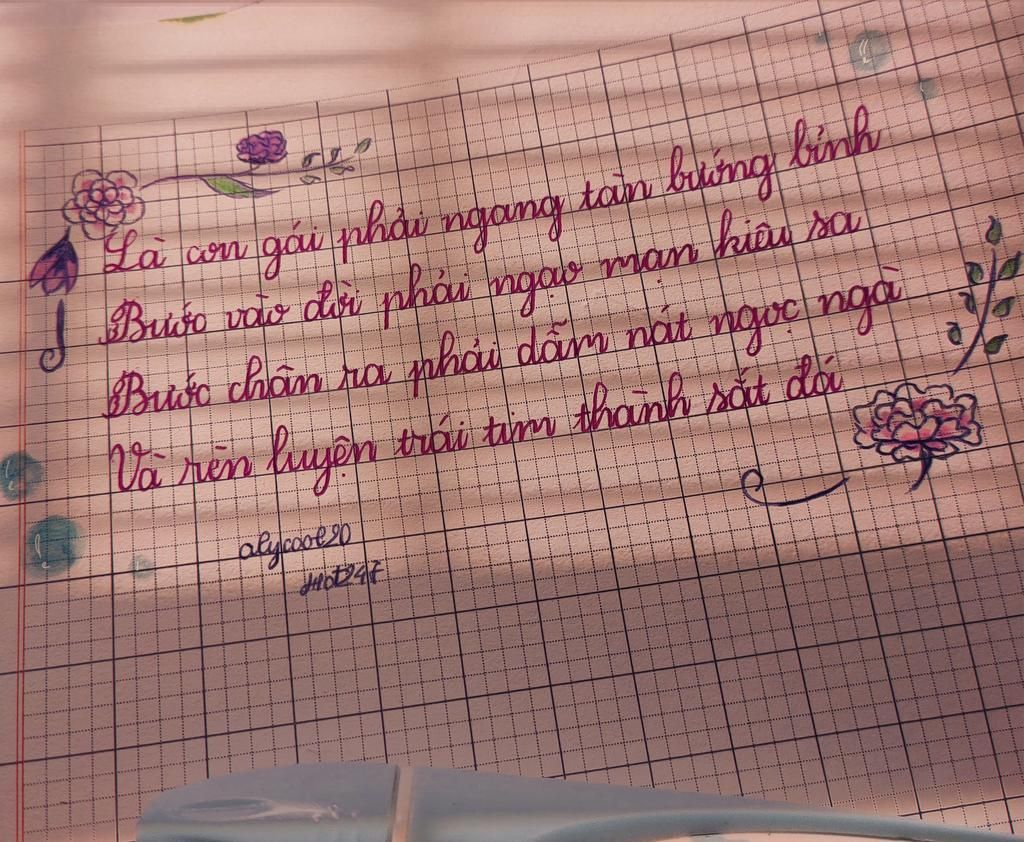 Là con gái phải ngang tàn bướng bỉnh
Bước vào đời phải ngạo mạn kiêu sa
Bước chân ra phải dẫm nát ngọc ngà
Và rèn luyện trái tim thành sắt đá
alycool90
Hot24f